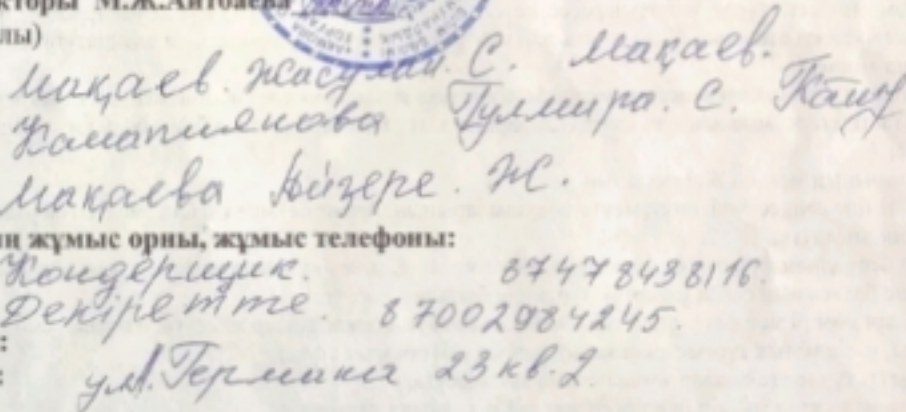 кторы М.Ж.Айтбаева
лы)
Мақаев. Жасулан. С. Мақаев.
Камапиянова Гулмира. С.
Мақаева Айзере. Ж.
ың жұмыс орны, жұмыс телефоны:
Кондерщик. 87478438116.
Декіретте. 87002984245.
:
: ул А. Германа 23 кв. 2